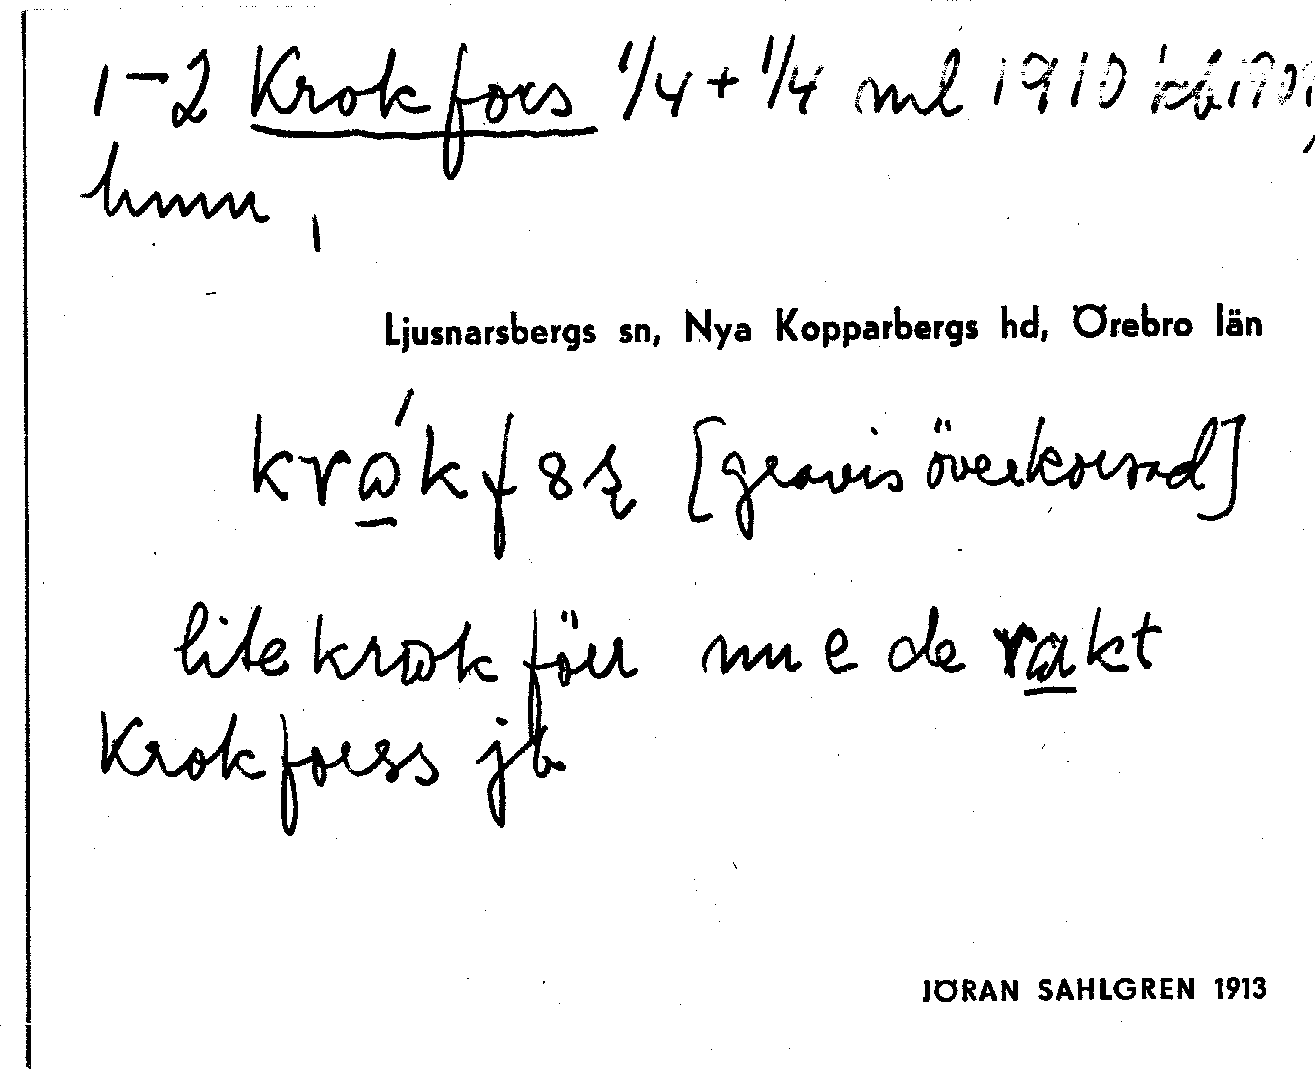 1-2 Krokfors 1/4 + 1/4 ml 1910
hmn,
Ljusnarsbergs sn, Nya Kopparbergs hd, Örebro län
[gravis överkorsad]
lite krok förr nu e de rakt
Krokforss jb
JÖRAN SAHLGREN 1913